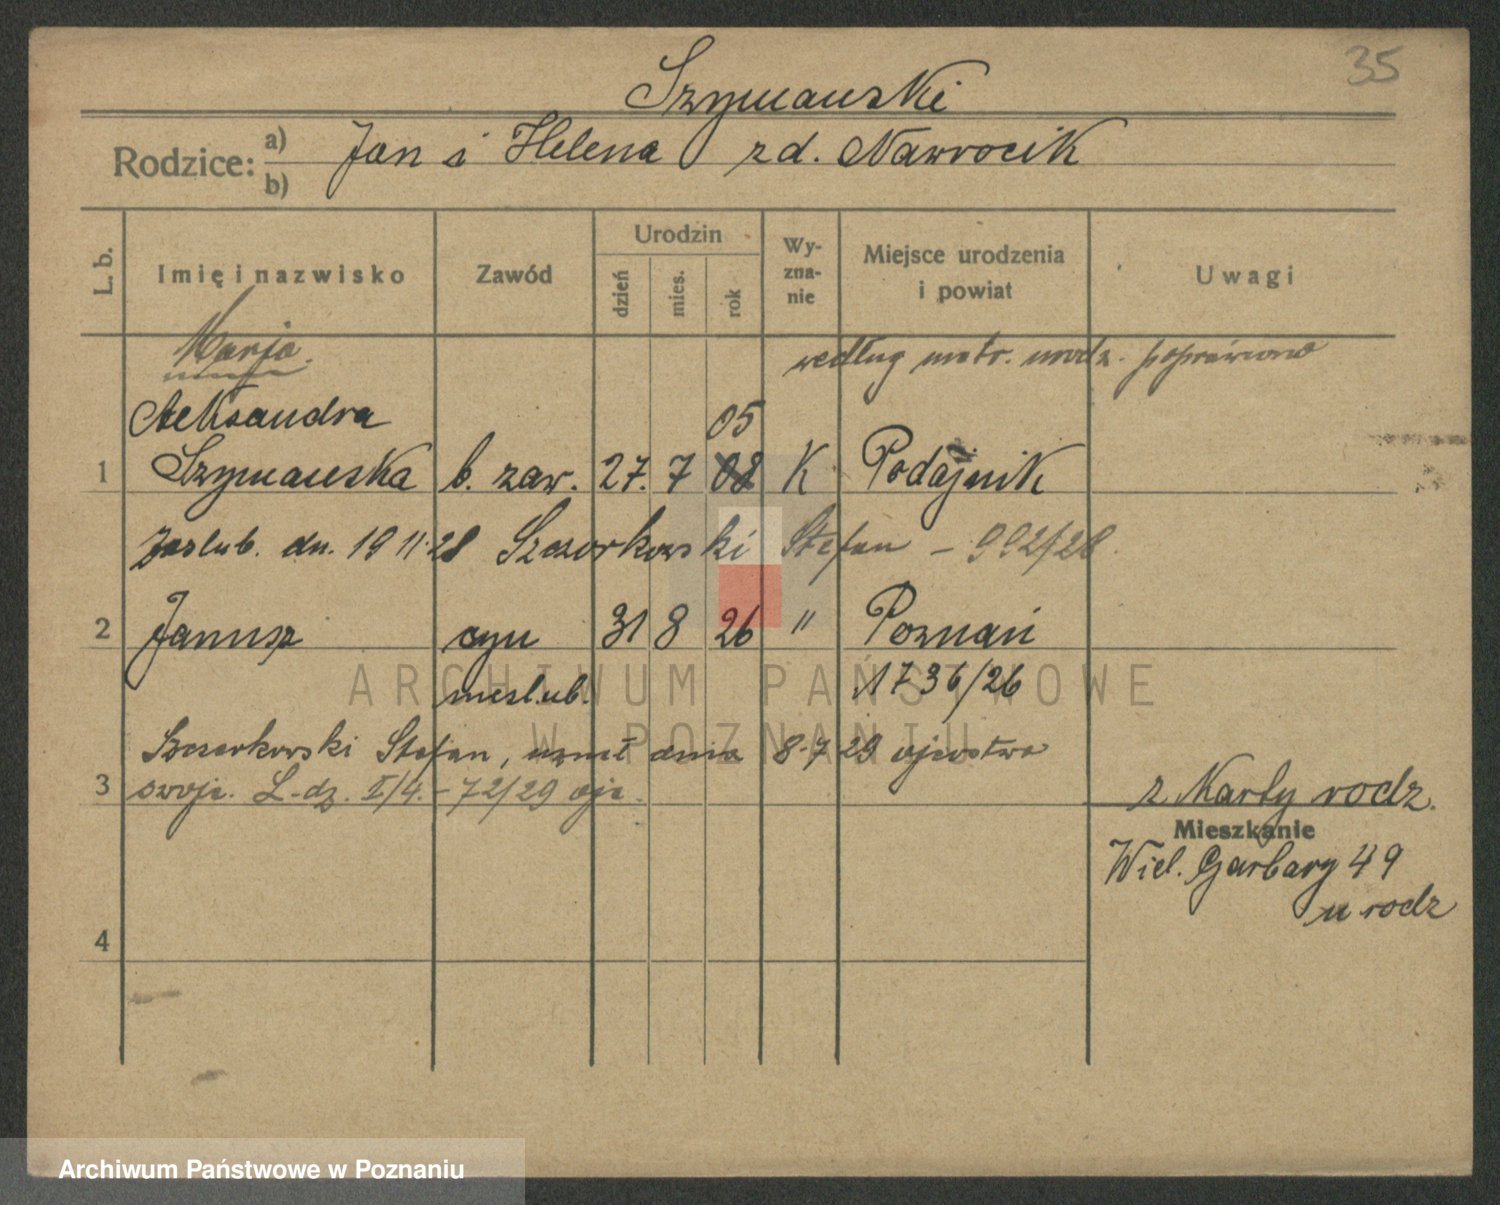 35
Szymański
Rodzice: a) b) Jan i Helena zd. Nawrocik
L. b.
Imię i nazwisko
Zawód
Urodzin
dzień
mies.
rok
Wy-
zna-
nie
Miejsce urodzenia
i powiat
Uwagi
Marja.
według metr. urodz. poprawiono
Aleksandra
05
1 Szymańska b. zaw. 27. 7 08 K Podajnik
zaślub. dn. 19 11.28 Szczorkowski Stefan - 992/28.
2 Janusz syn 31 8 26 " Poznań
nieślub. 1736/26
Szczorkowski Stefan, uznał dnia 8-7 29 ojcostwo
3 swoje. L-dz. I/4.-72/29 ojc.
z Karty rodz.
Mieszkanie
Wiel. Garbary 49
u rodz
4
ARCHIWUM PAŃSTWOWE
W POZNANIU
Archiwum Państwowe w Poznaniu